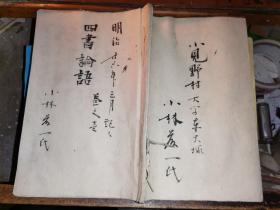 明治廿六年三月記之
四書論語 巻之壱
小林茂一氏
小見野村大字東大塚
小林茂一氏